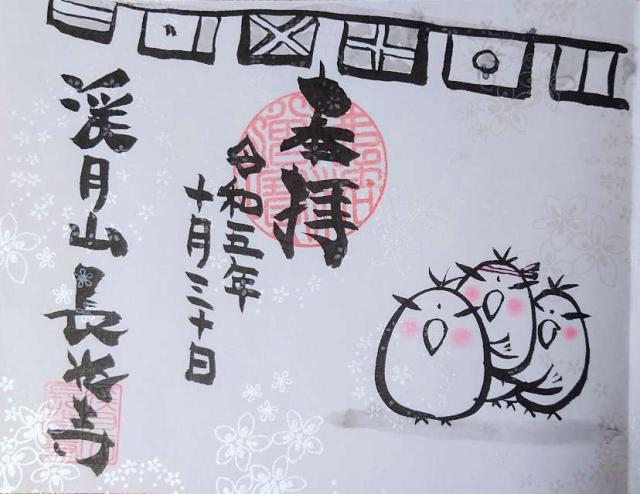 奉拝
令和五年
十月三十日
渓月山長寺